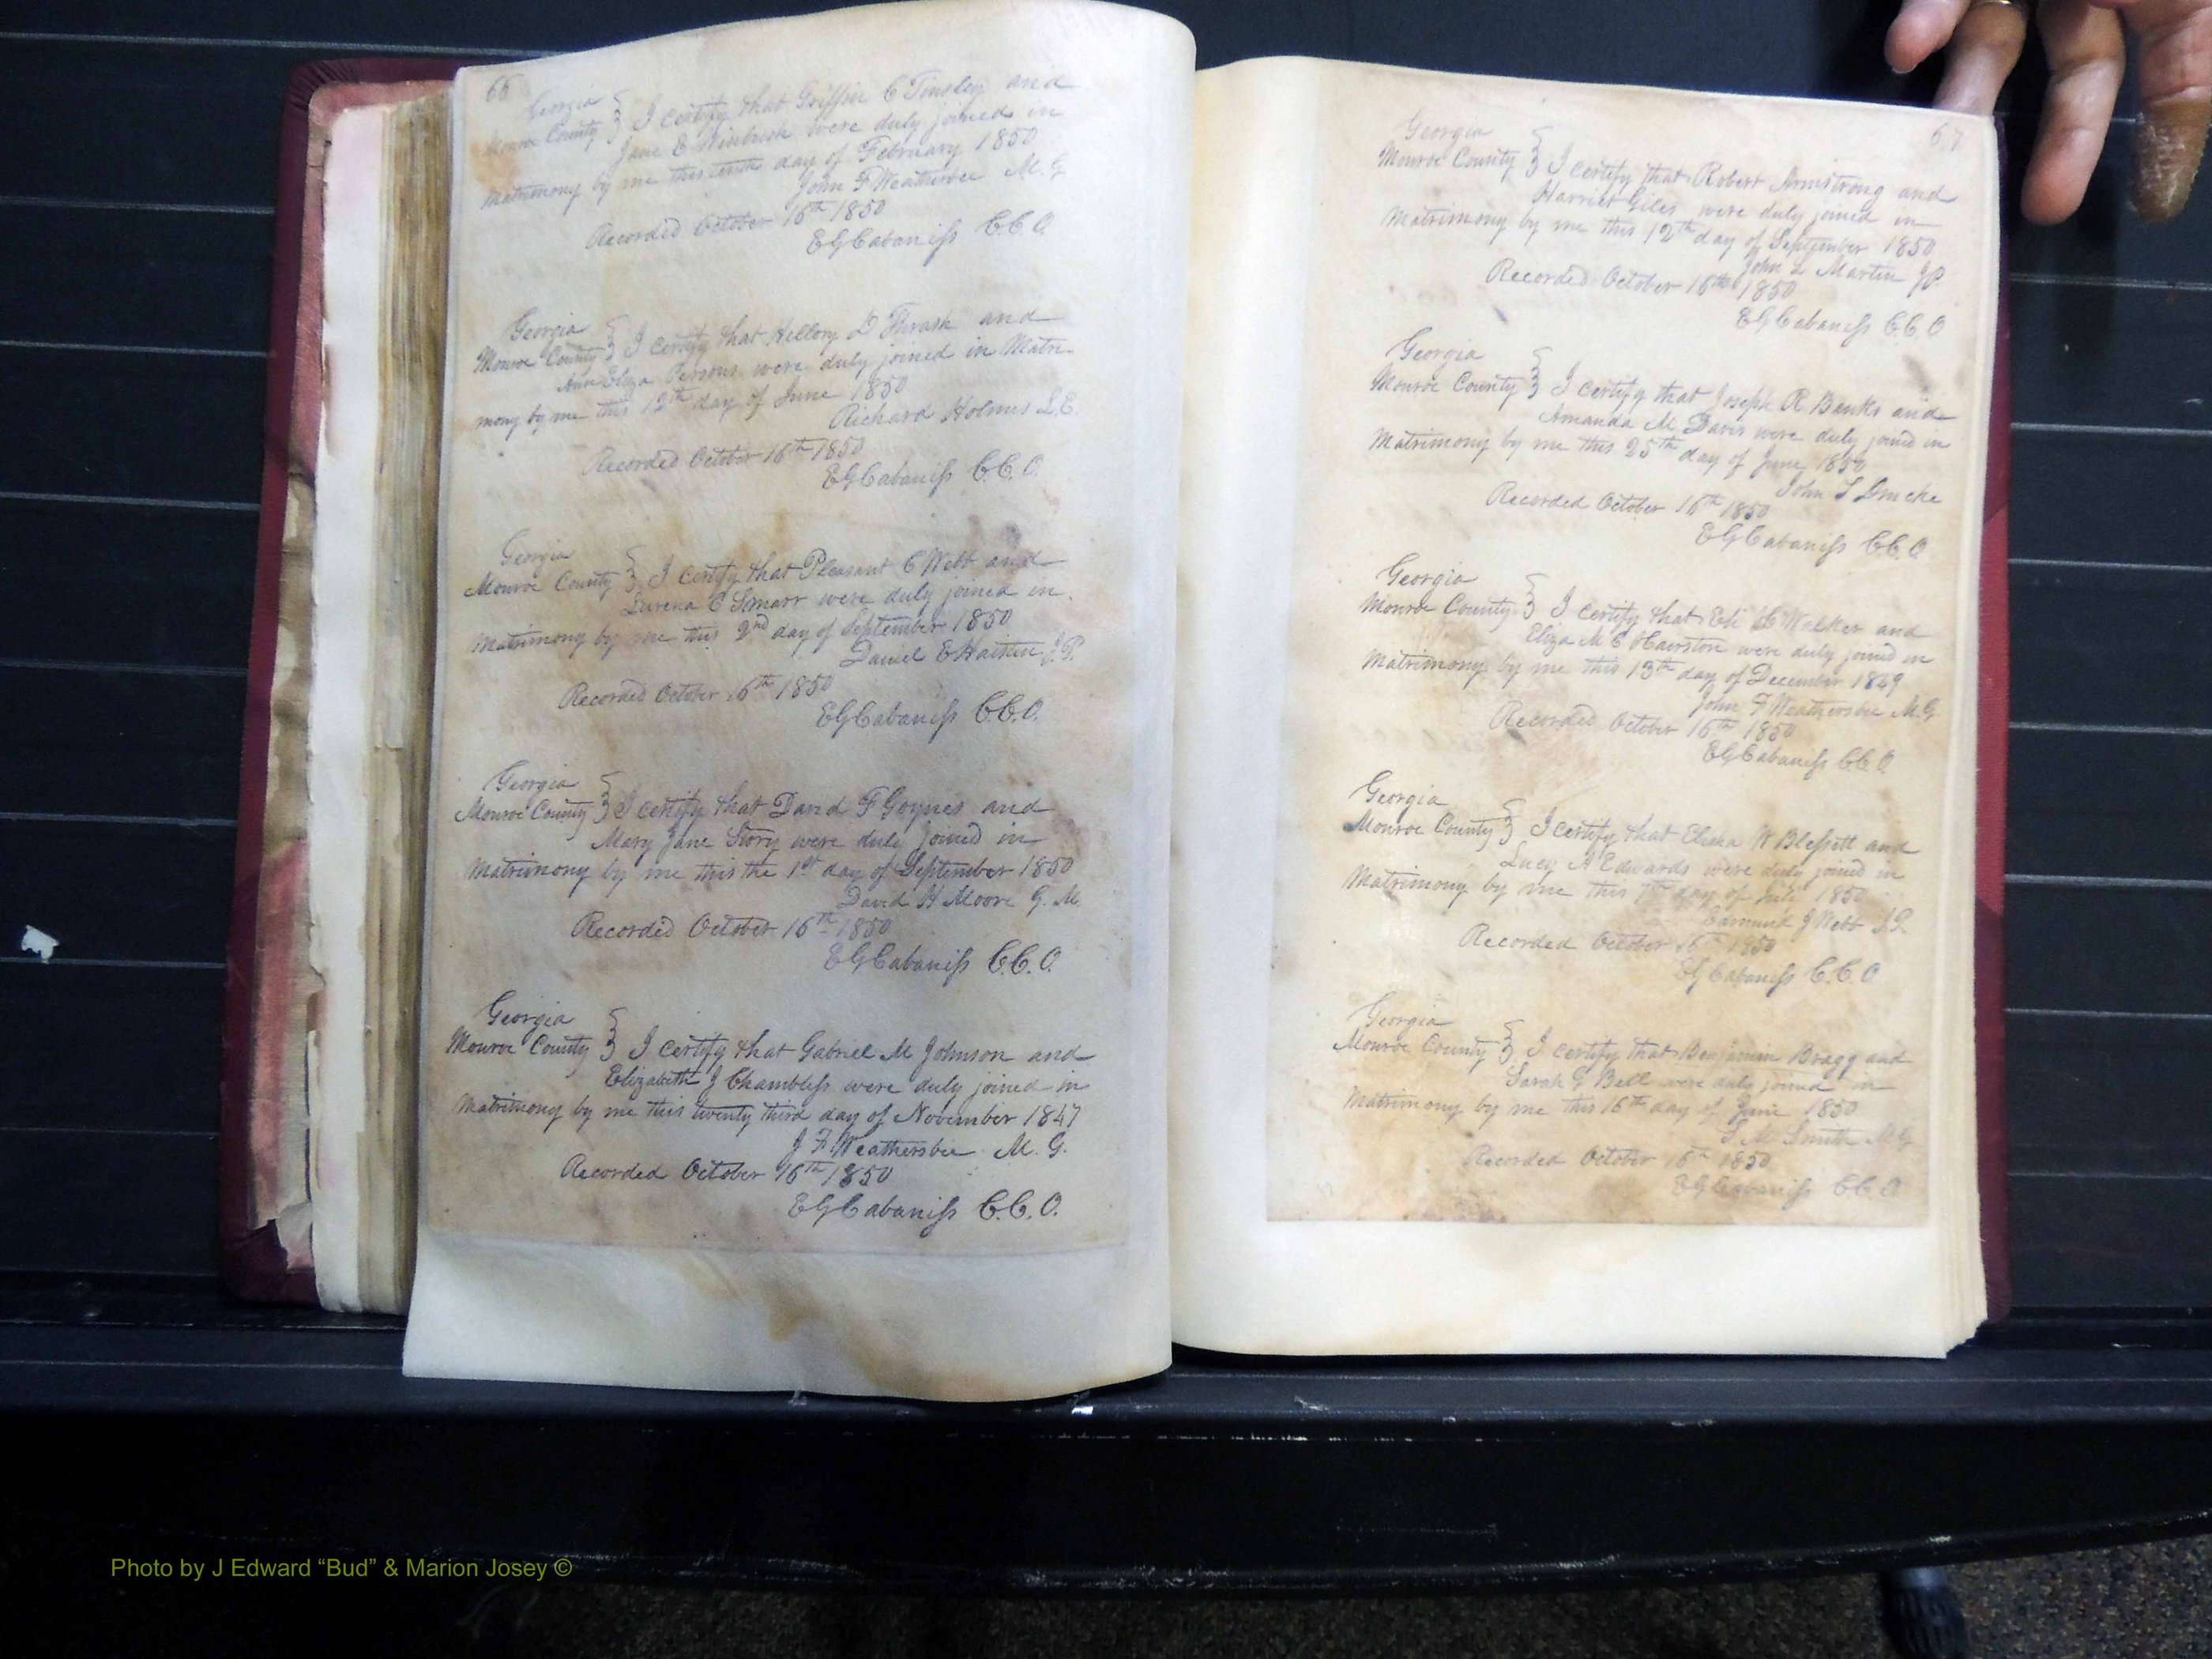 66
Georgia
Monroe County } I certify that Griffin C Tinsley and
Jane E Winbush were duly joined in
Matrimony by me this tenth day of February 1850
John F Weathersbee M.G
Recorded October 16th 1850
EGCabaniss C.C.O.
Georgia
Monroe County } I certify that D Thrash and
Ann Eliza Persons were duly joined in Matri-
mony by me this 12th day of June 1850
Richard Holmes L.E.
Recorded October 16th 1850
EGCabaniss C.C.O.
Georgia
Monroe County } I certify that Pleasant C Webb and
Lurena C Smarr were duly joined in
Matrimony by me this 2nd day of September 1850
Daniel E J.P.
Recorded October 16th 1850
EGCabaniss C.C.O.
Georgia
Monroe County } I certify that David F Goynes and
Mary Jane Story were duly joined in
Matrimony by me this the 1st day of September 1850
David H Moore G.M
Recorded October 16th 1850
EGCabaniss C.C.O.
Georgia
Monroe County } I certify that Gabriel M Johnson and
Elizabeth J Chambless were duly joined in
Matrimony by me this twenty third day of November 1847
J F Weathersbee M.G.
Recorded October 16th 1850
EGCabaniss C.C.O.
67
Georgia
Monroe County } I certify that Robert Armstrong and
Harriet Giles were duly joined in
Matrimony by me this 12th day of September 1850
John L Martin JP
Recorded October 16th 1850
EGCabaniss C.C.O
Georgia
Monroe County } I certify that Joseph R Banks and
Amanda M Davis were duly joined in
Matrimony by me this 25th day of June 1850
John S
Recorded October 16th 1850
EGCabaniss C.C.O
Georgia
Monroe County } I certify that Eli Walker and
Eliza M C Hairston were duly joined in
Matrimony by me this 13th day of December 1849
John F Weathersbee M.G
Recorded October 16th 1850
EGCabaniss C.C.O.
Georgia
Monroe County } I certify that Elisha W Blessett and
Lucy A Edwards were duly joined in
Matrimony by me this 7th day of July 1850
Edmund J Webb J.P.
Recorded October 16th 1850
EGCabaniss C.C.O
Georgia
Monroe County } I certify that Benjamin Bragg and
Sarah G Bell were duly joined in
Matrimony by me this 16th day of June 1850
S M Smith M.G
Recorded October 16th 1850
EGCabaniss C.C.O
Photo by J Edward “Bud” & Marion Josey ©